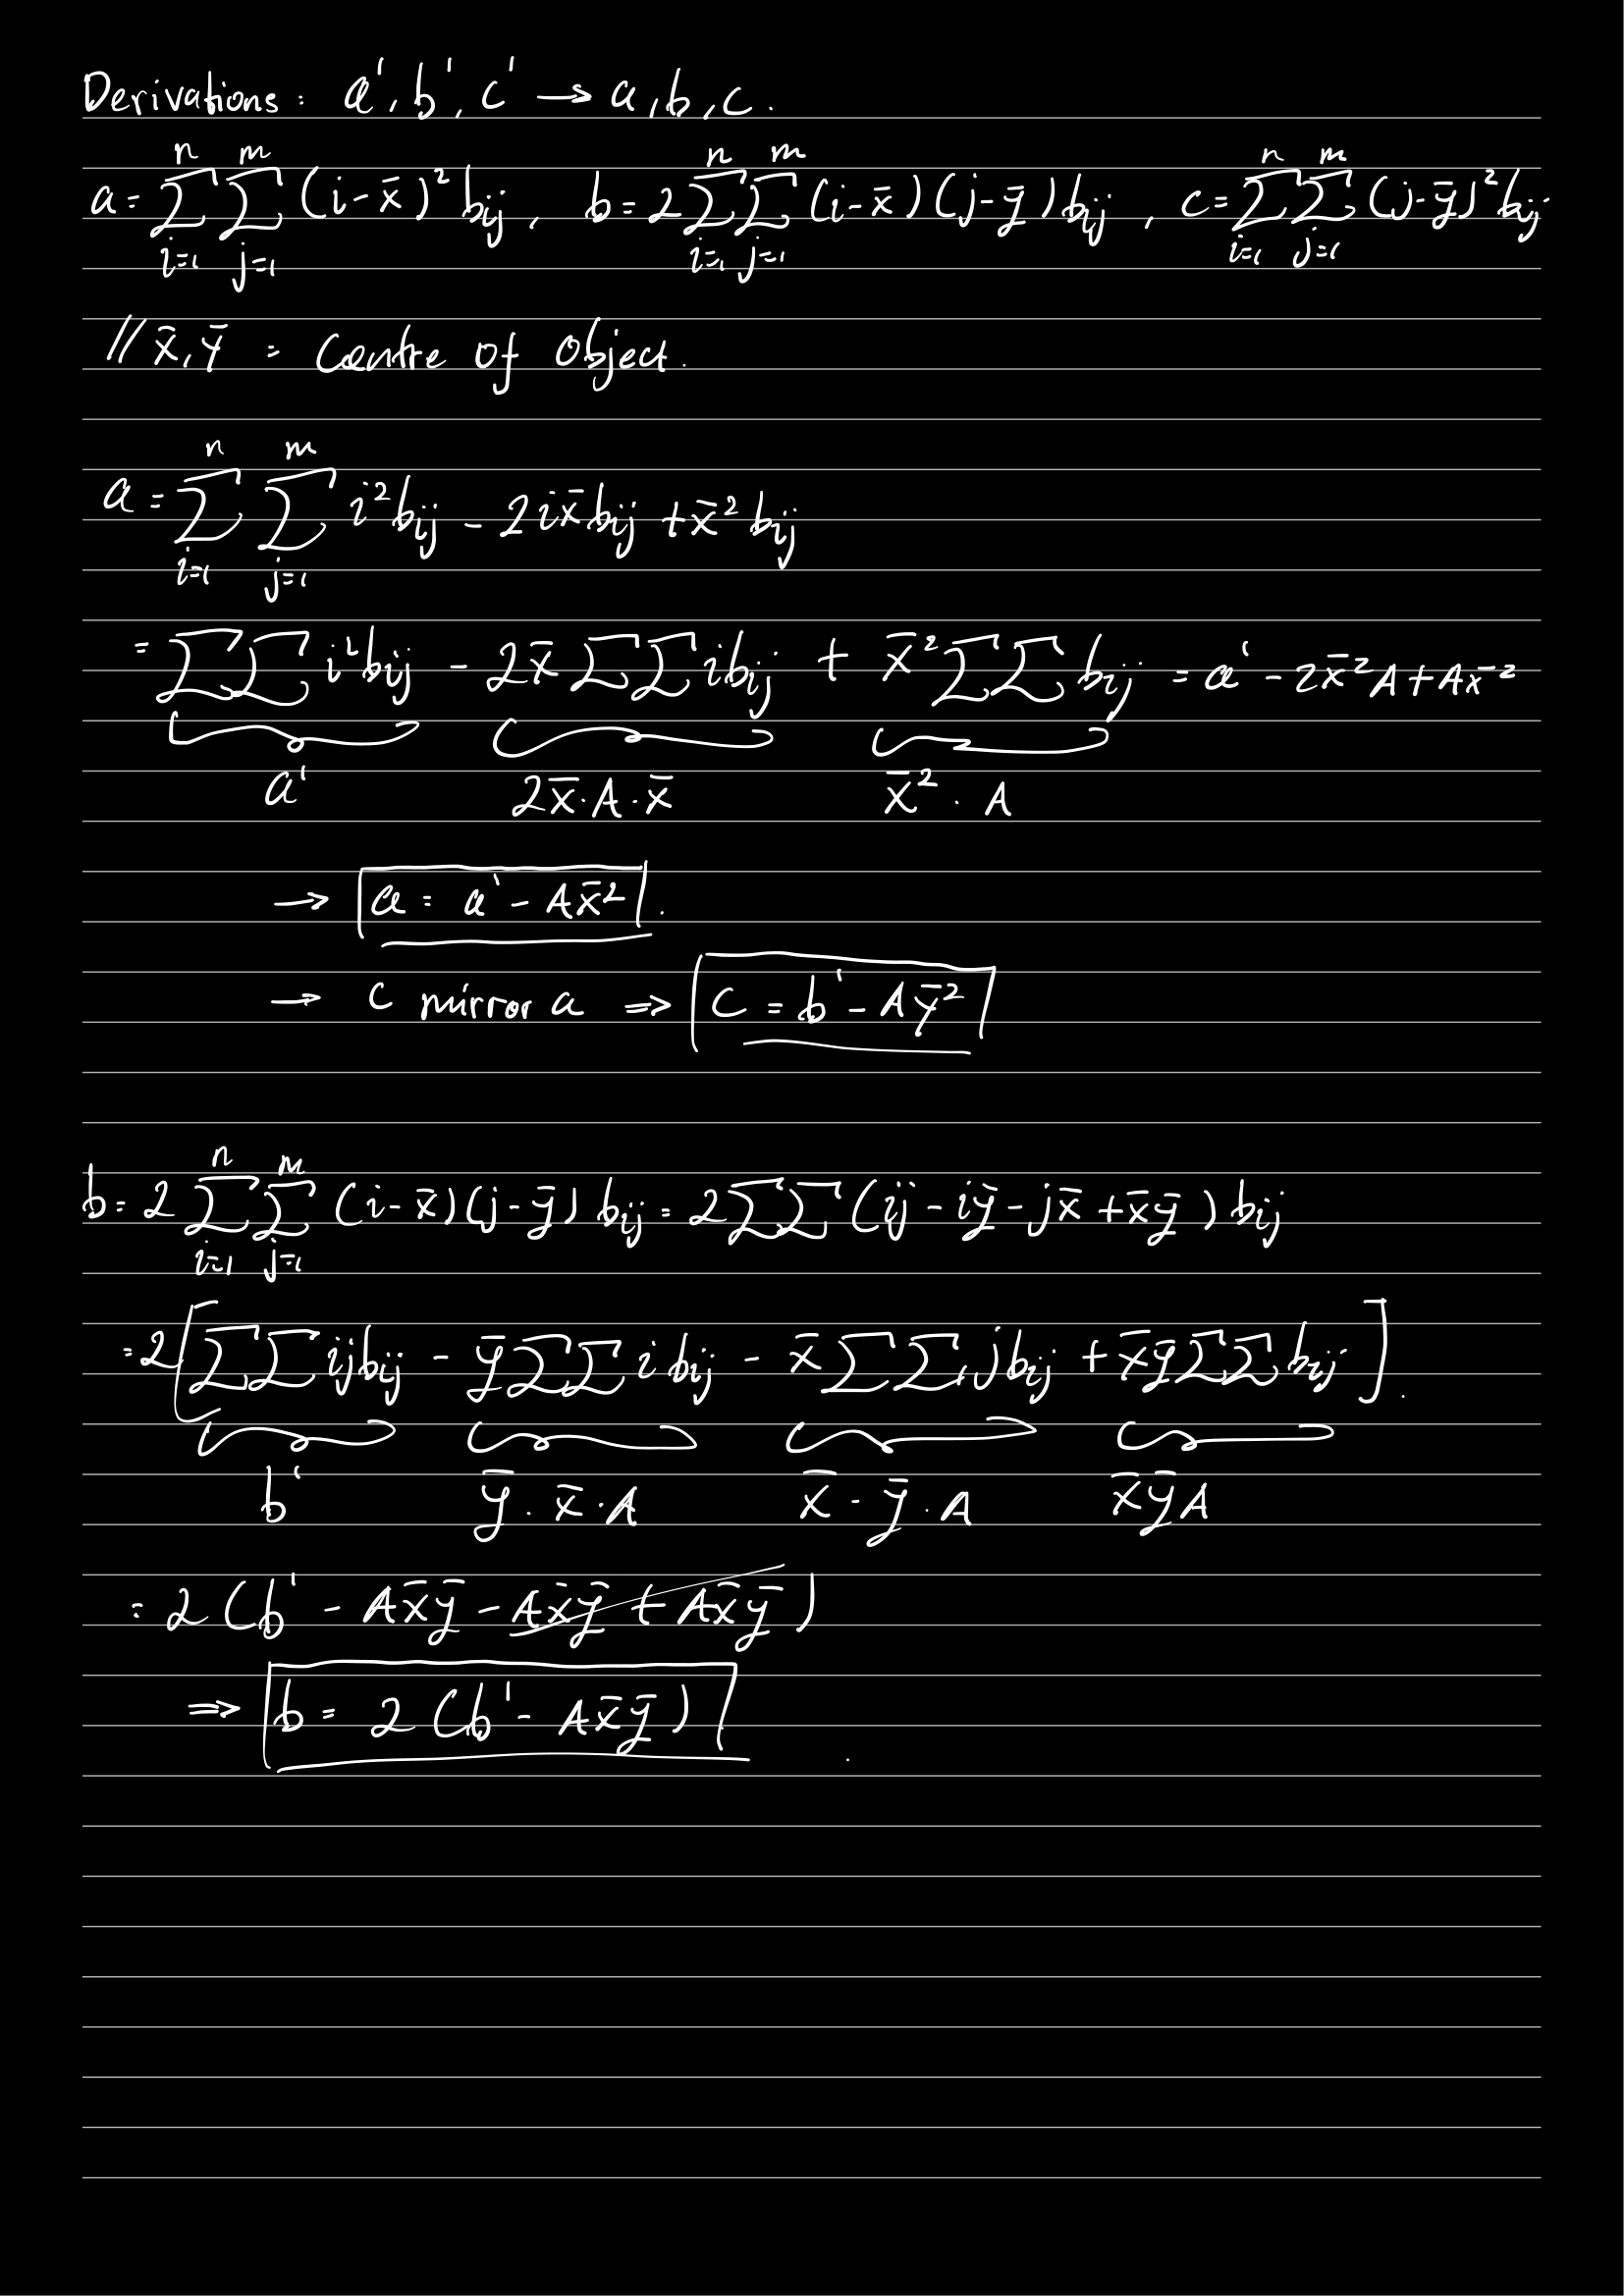 Derivations: a', b', c' → a, b, c.
a = ∑_{i=1}^{n} ∑_{j=1}^{m} (i - x̄)² b_{ij}, b = 2 ∑_{i=1}^{n} ∑_{j=1}^{m} (i - x̄)(j - ȳ) b_{ij}, c = ∑_{i=1}^{n} ∑_{j=1}^{m} (j - ȳ)² b_{ij}
// x̄, ȳ = Centre of object.
a = ∑_{i=1}^{n} ∑_{j=1}^{m} i² b_{ij} - 2 i x̄ b_{ij} + x̄² b_{ij}
= ∑∑ i² b_{ij} - 2x̄ ∑∑ i b_{ij} + x̄² ∑∑ b_{ij} = a' - 2x̄²A + Ax̄²
a' 2x̄·A·x̄ x̄²·A
→ a = a' - Ax̄².
→ c mirror a ⇒ c = b' - Aȳ²
b = 2 ∑_{i=1}^{n} ∑_{j=1}^{m} (i - x̄)(j - ȳ) b_{ij} = 2∑∑ (ij - iȳ - jx̄ + x̄ȳ) b_{ij}
= 2[∑∑ ij b_{ij} - ȳ∑∑ i b_{ij} - x̄∑∑ j b_{ij} + x̄ȳ∑∑ b_{ij}].
b' ȳ·x̄·A x̄·ȳ·A x̄ȳA
= 2(b' - Ax̄ȳ - Ax̄ȳ + Ax̄ȳ)
⇒ b = 2(b' - Ax̄ȳ)